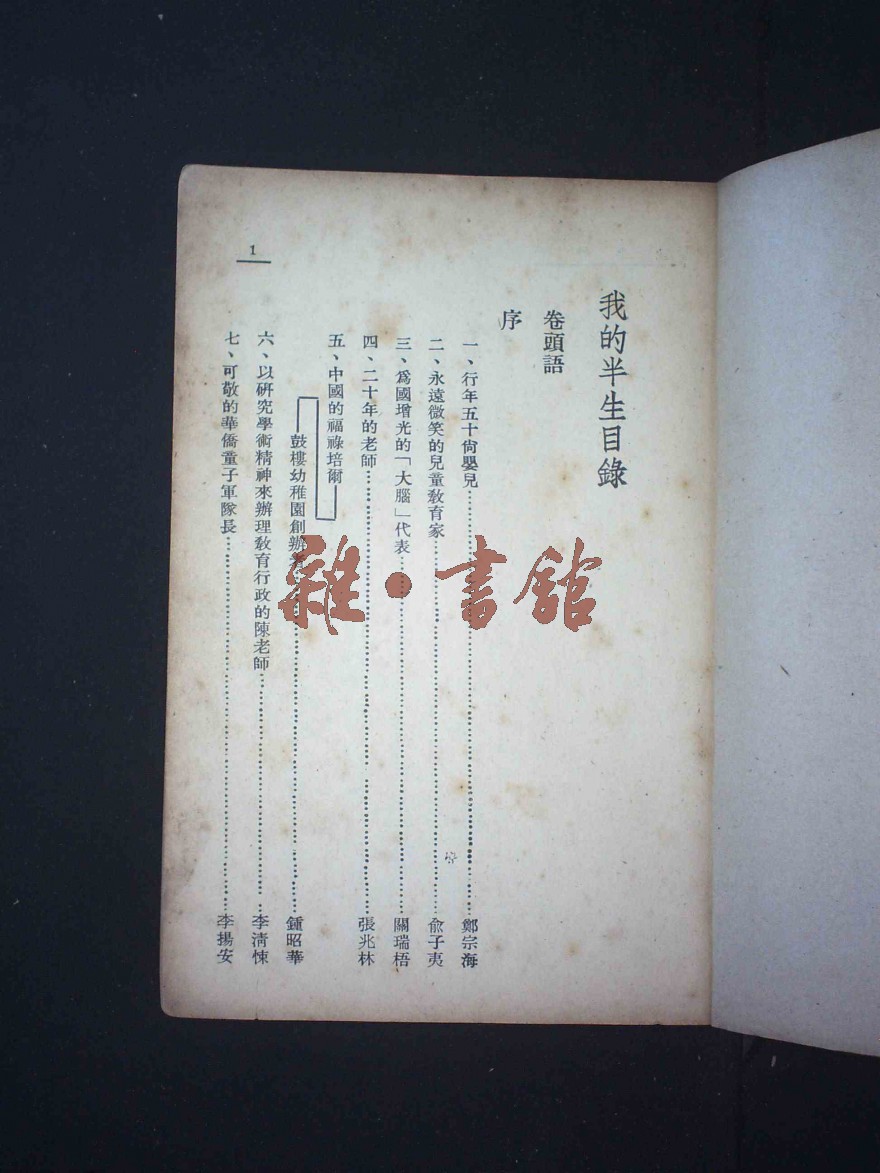 我的半生目錄
卷頭語
序
一、行年五十尙嬰兒……鄭宗海
二、永遠微笑的兒童敎育家……俞子夷
三、爲國增光的「大腦」代表……關瑞梧
四、二十年的老師……張兆林
五、中國的福祿培爾——
——鼓樓幼稚園創辦者……鍾昭華
六、以研究學術精神來辦理敎育行政的陳老師……李淸悚
七、可敬的華僑童子軍隊長……李揚安
1
雜·書館